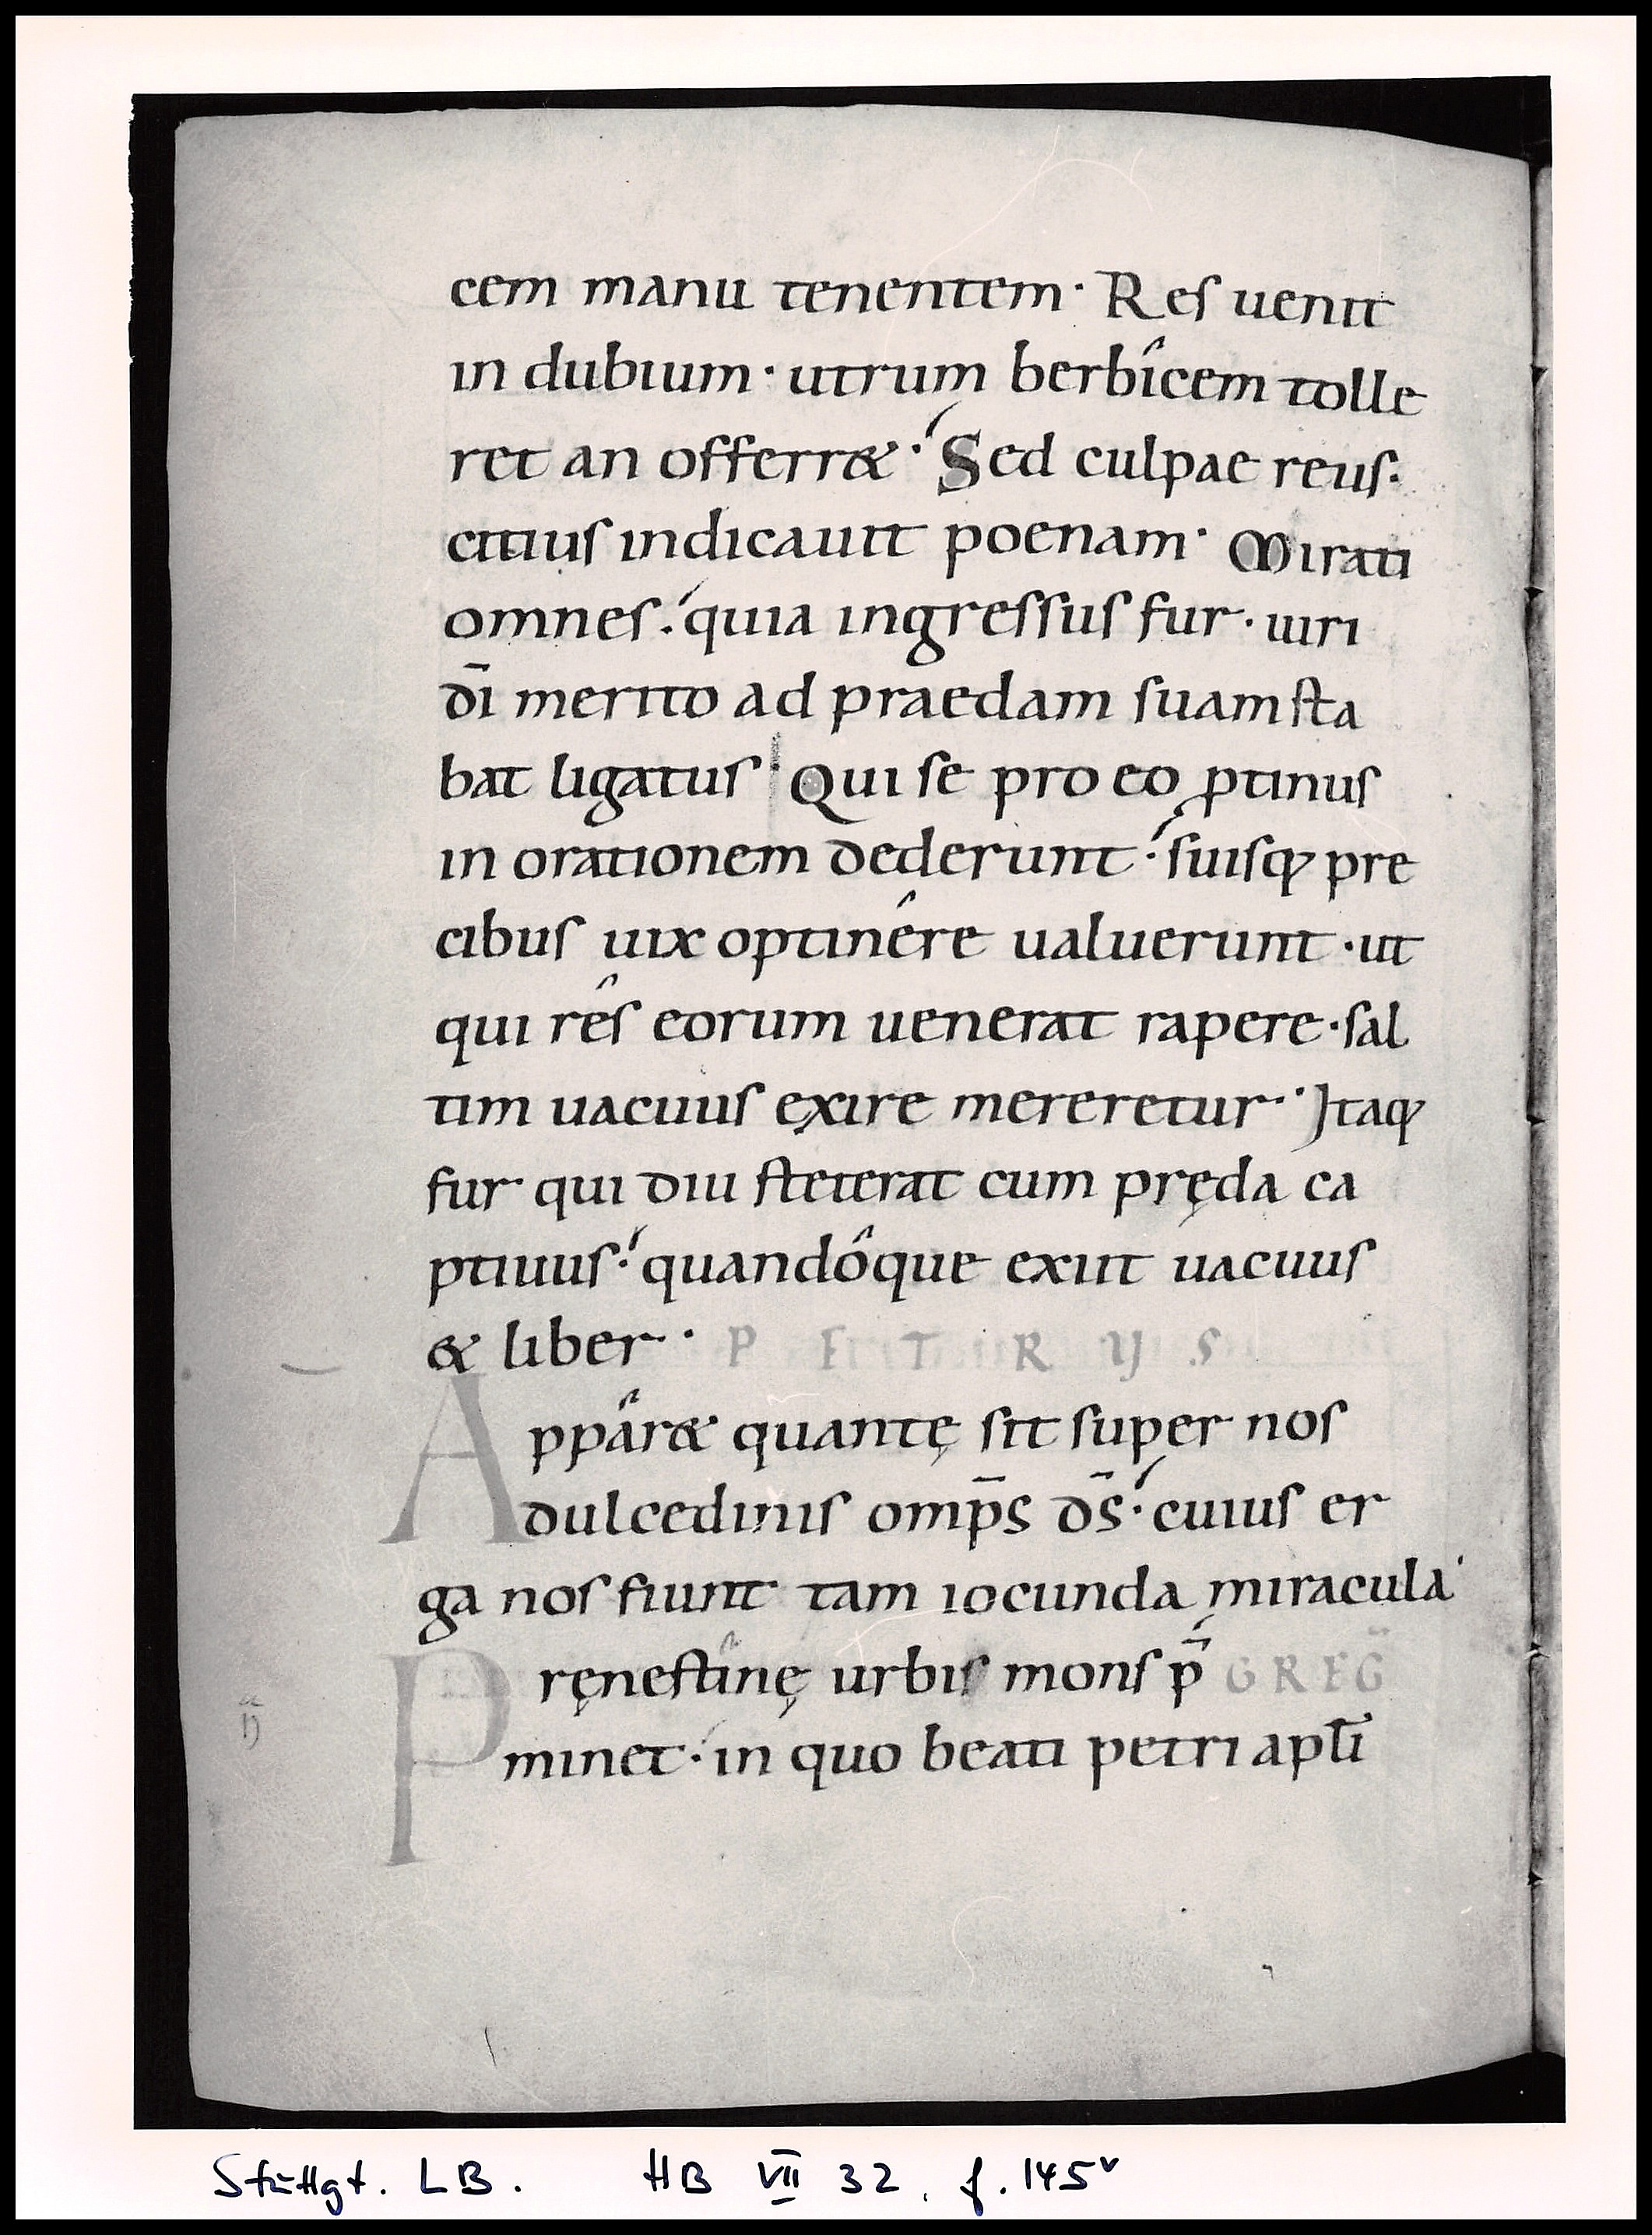 cem manu tenentem· Res uenit
in dubium· utrum berbîcem tolle
ret an offerr&· Sed culpae reus·
citius indicauit poenam· Mirati
omnes· quia ingressus fur· uiri
dī merito ad praedam suam sta
bat ligatus· Qui se pro eo ꝓtinus
in orationem dederunt· suisq; pre
cibus uix optinêre ualuerunt· ut
qui rês eorum uenerat rapere· sal
tim uacuus exire mereretur· Itaq;
fur qui diu steterat cum pręda ca
ptiuus· quandôque exiit uacuus
& liber· PETRUS
Appâr& quantę sit super nos
dulcedinis omp̄s d̄s· cuius er
ga nos fiunt tam iocunda miracula·
Pręnestînę urbis mons p̄ GREḠ
minet· in quo beati petri apłi
Stuttgt. LB. HB VII 32, f. 145v